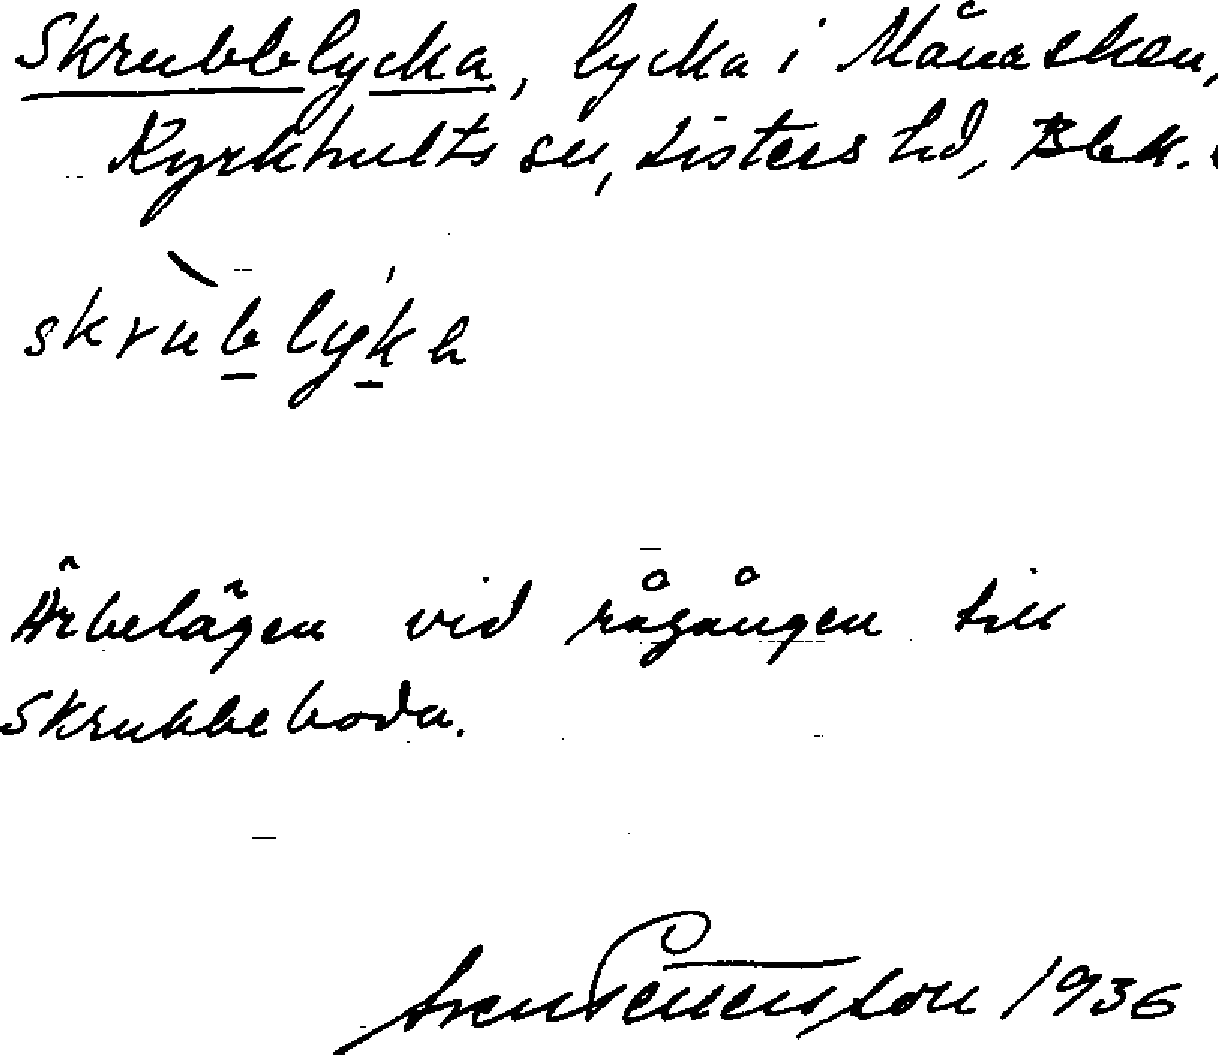 Skrubblycka, lycka i Månasken,
Kyrkhults sn, Listers hd, Blek.
skrùblýka
Ärbelägen vid rågången till
Skrubbeboda.
Sven 1936